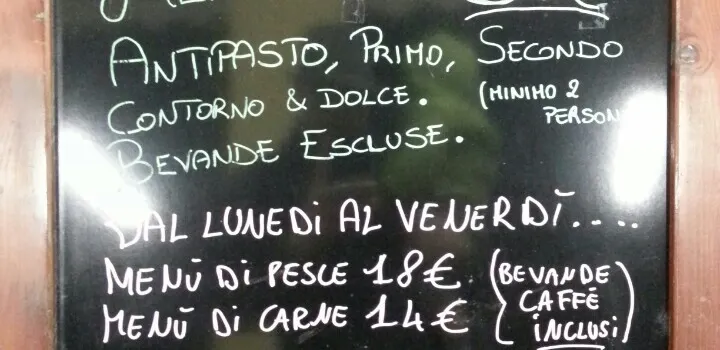 ANTIPASTO, PRIMO, SECONDO
CONTORNO & DOLCE. (MINIMO 2
PERSON
BEVANDE ESCLUSE.
DAL LUNEDì AL VENERDÌ....
MENÙ Di PESCE 18€ (BEVANDE
CAFFÈ
MENÙ Di CARNE 14€ iNCLUSi)